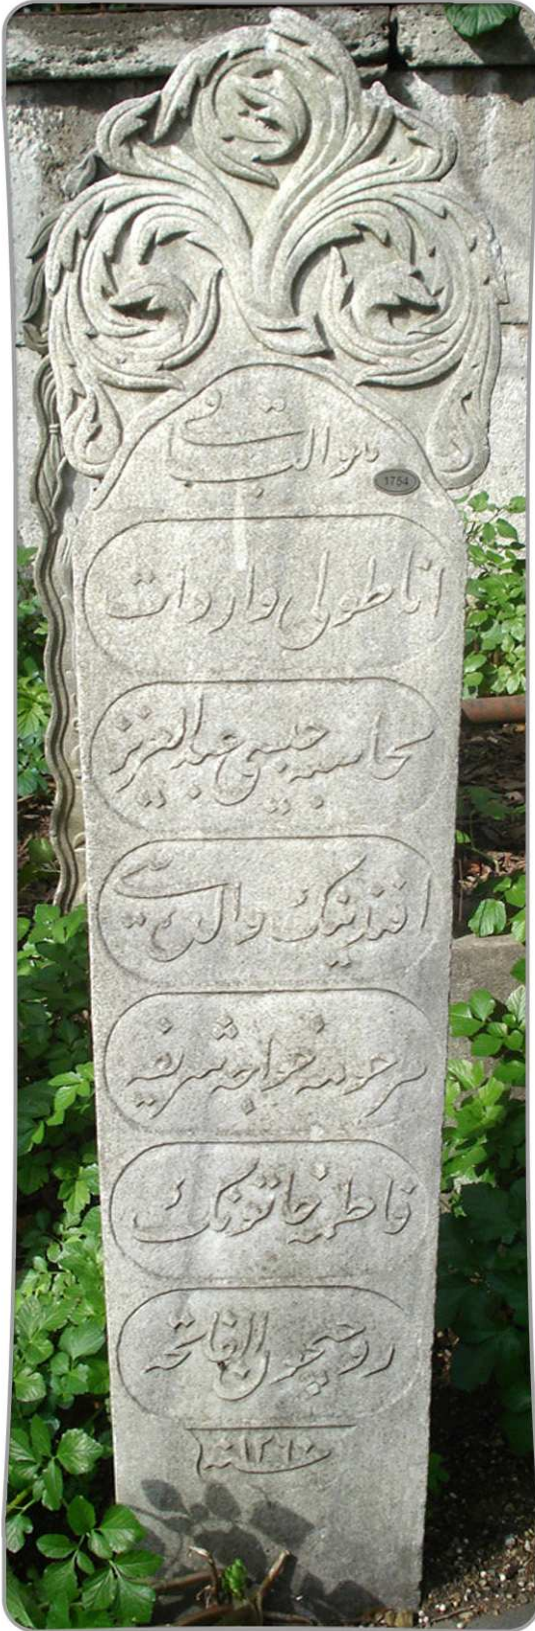 هو الباقی
1754
اناطولی واردات
محاسبه جیسی عبدالعزیز
افندینک والده سی
مرحومه خواجه شریفه
فاطمه خاتونک
روحیچون الفاتحه
سنه